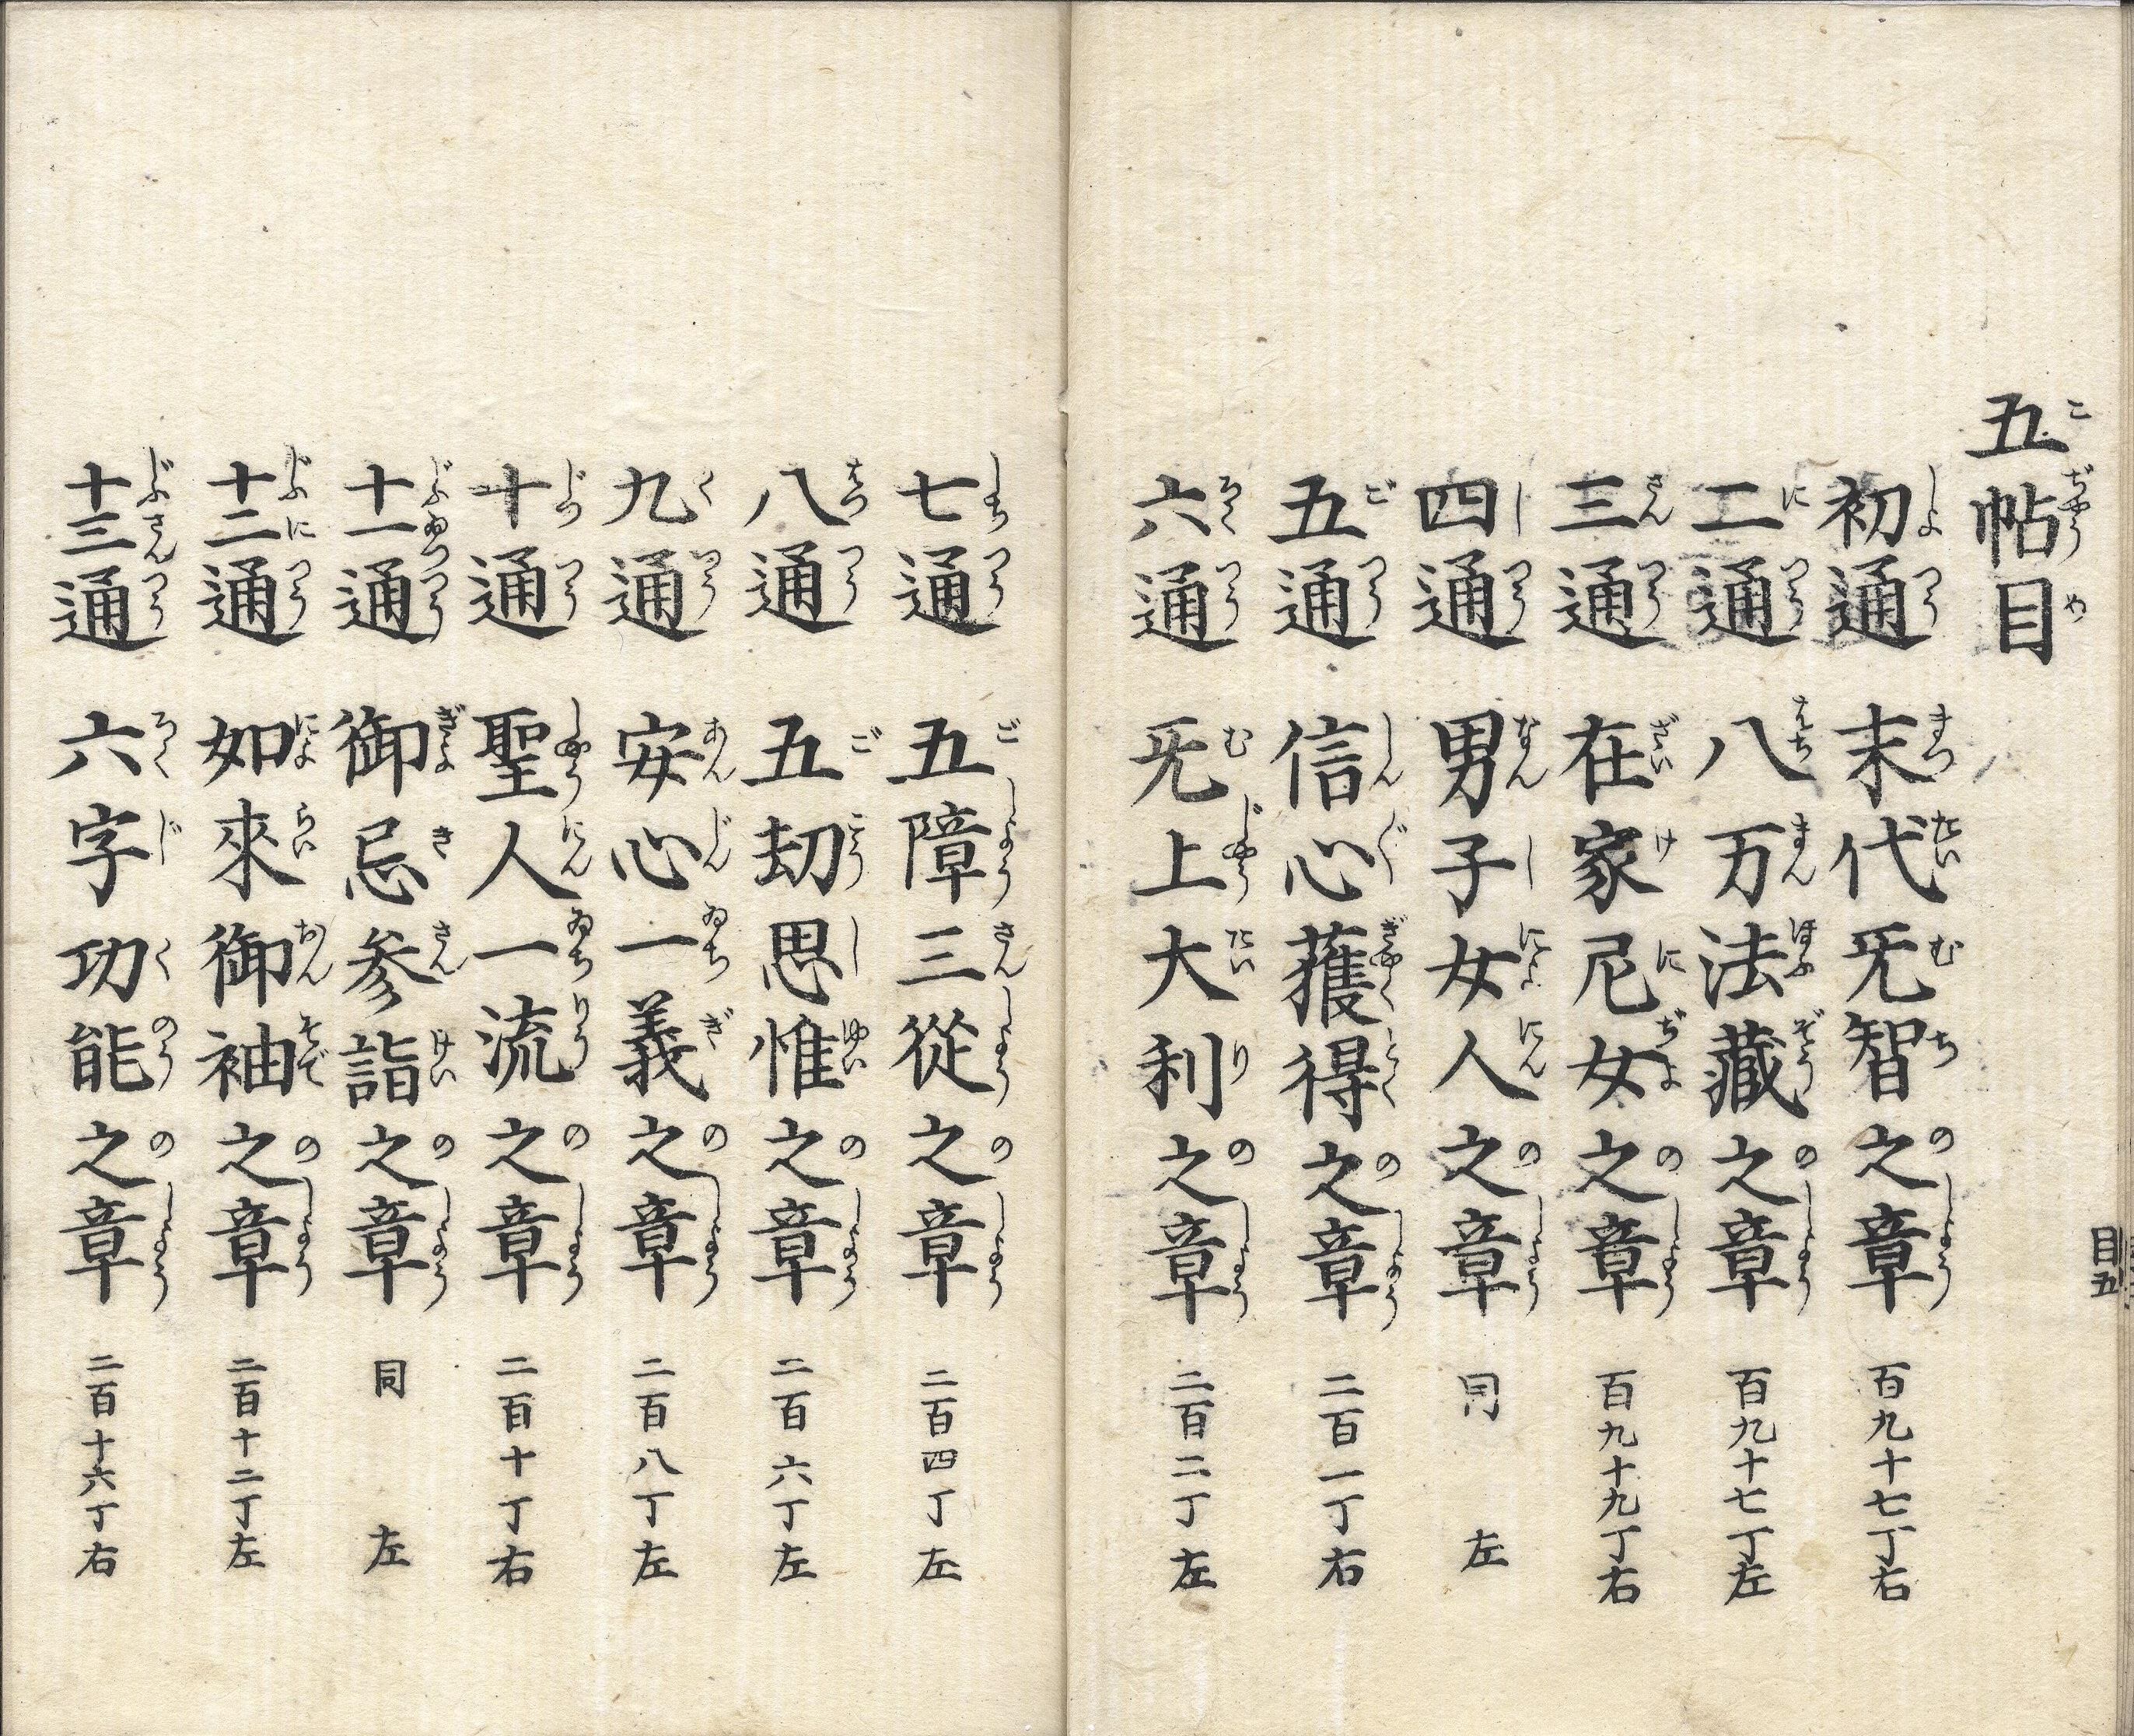 五帖目
初通 末代旡智之章 百九十七丁右
二通 八万法藏之章 百九十七丁左
三通 在家尼女之章 百九十九丁右
四通 男子女人之章 同 左
五通 信心獲得之章 二百一丁右
六通 旡上大利之章 二百二丁左
目五
七通 五障三從之章 二百四丁左
八通 五劫思惟之章 二百六丁左
九通 安心一義之章 二百八丁左
十通 聖人一流之章 二百十丁右
十一通 御忌参詣之章 同 左
十二通 如來御袖之章 二百十二丁左
十三通 六字功能之章 二百十六丁右